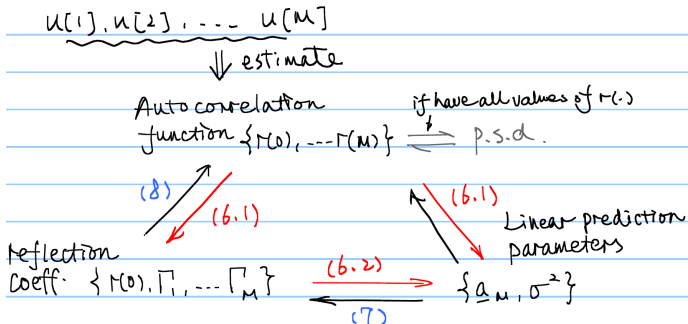 u[1], u[2], .... u[M]
⇓ estimate
Autocorrelation
function {r(0), ---r(M)} ⇌ p.s.d.
if have all values of r(·)
(8)
(6.1)
(6.1)
Linear prediction
parameters
reflection
coeff. {r(0), Γ₁, ... Γ_M}
(6.2)
(7)
{a_M, σ²}